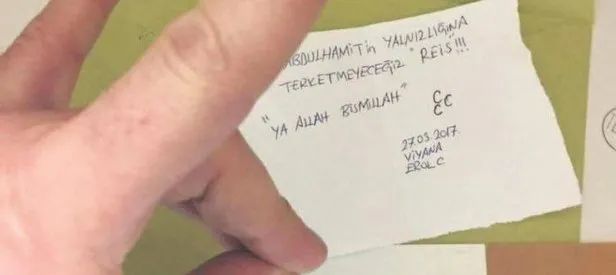 ABDULHAMİTin YALNIZLIĞINA
TERKETMEYECEĞİZ "REİS"!!!
"YA ALLAH BİSMİLLAH"
C
CC
C
27.03.2017.
VİYANA
EROL C